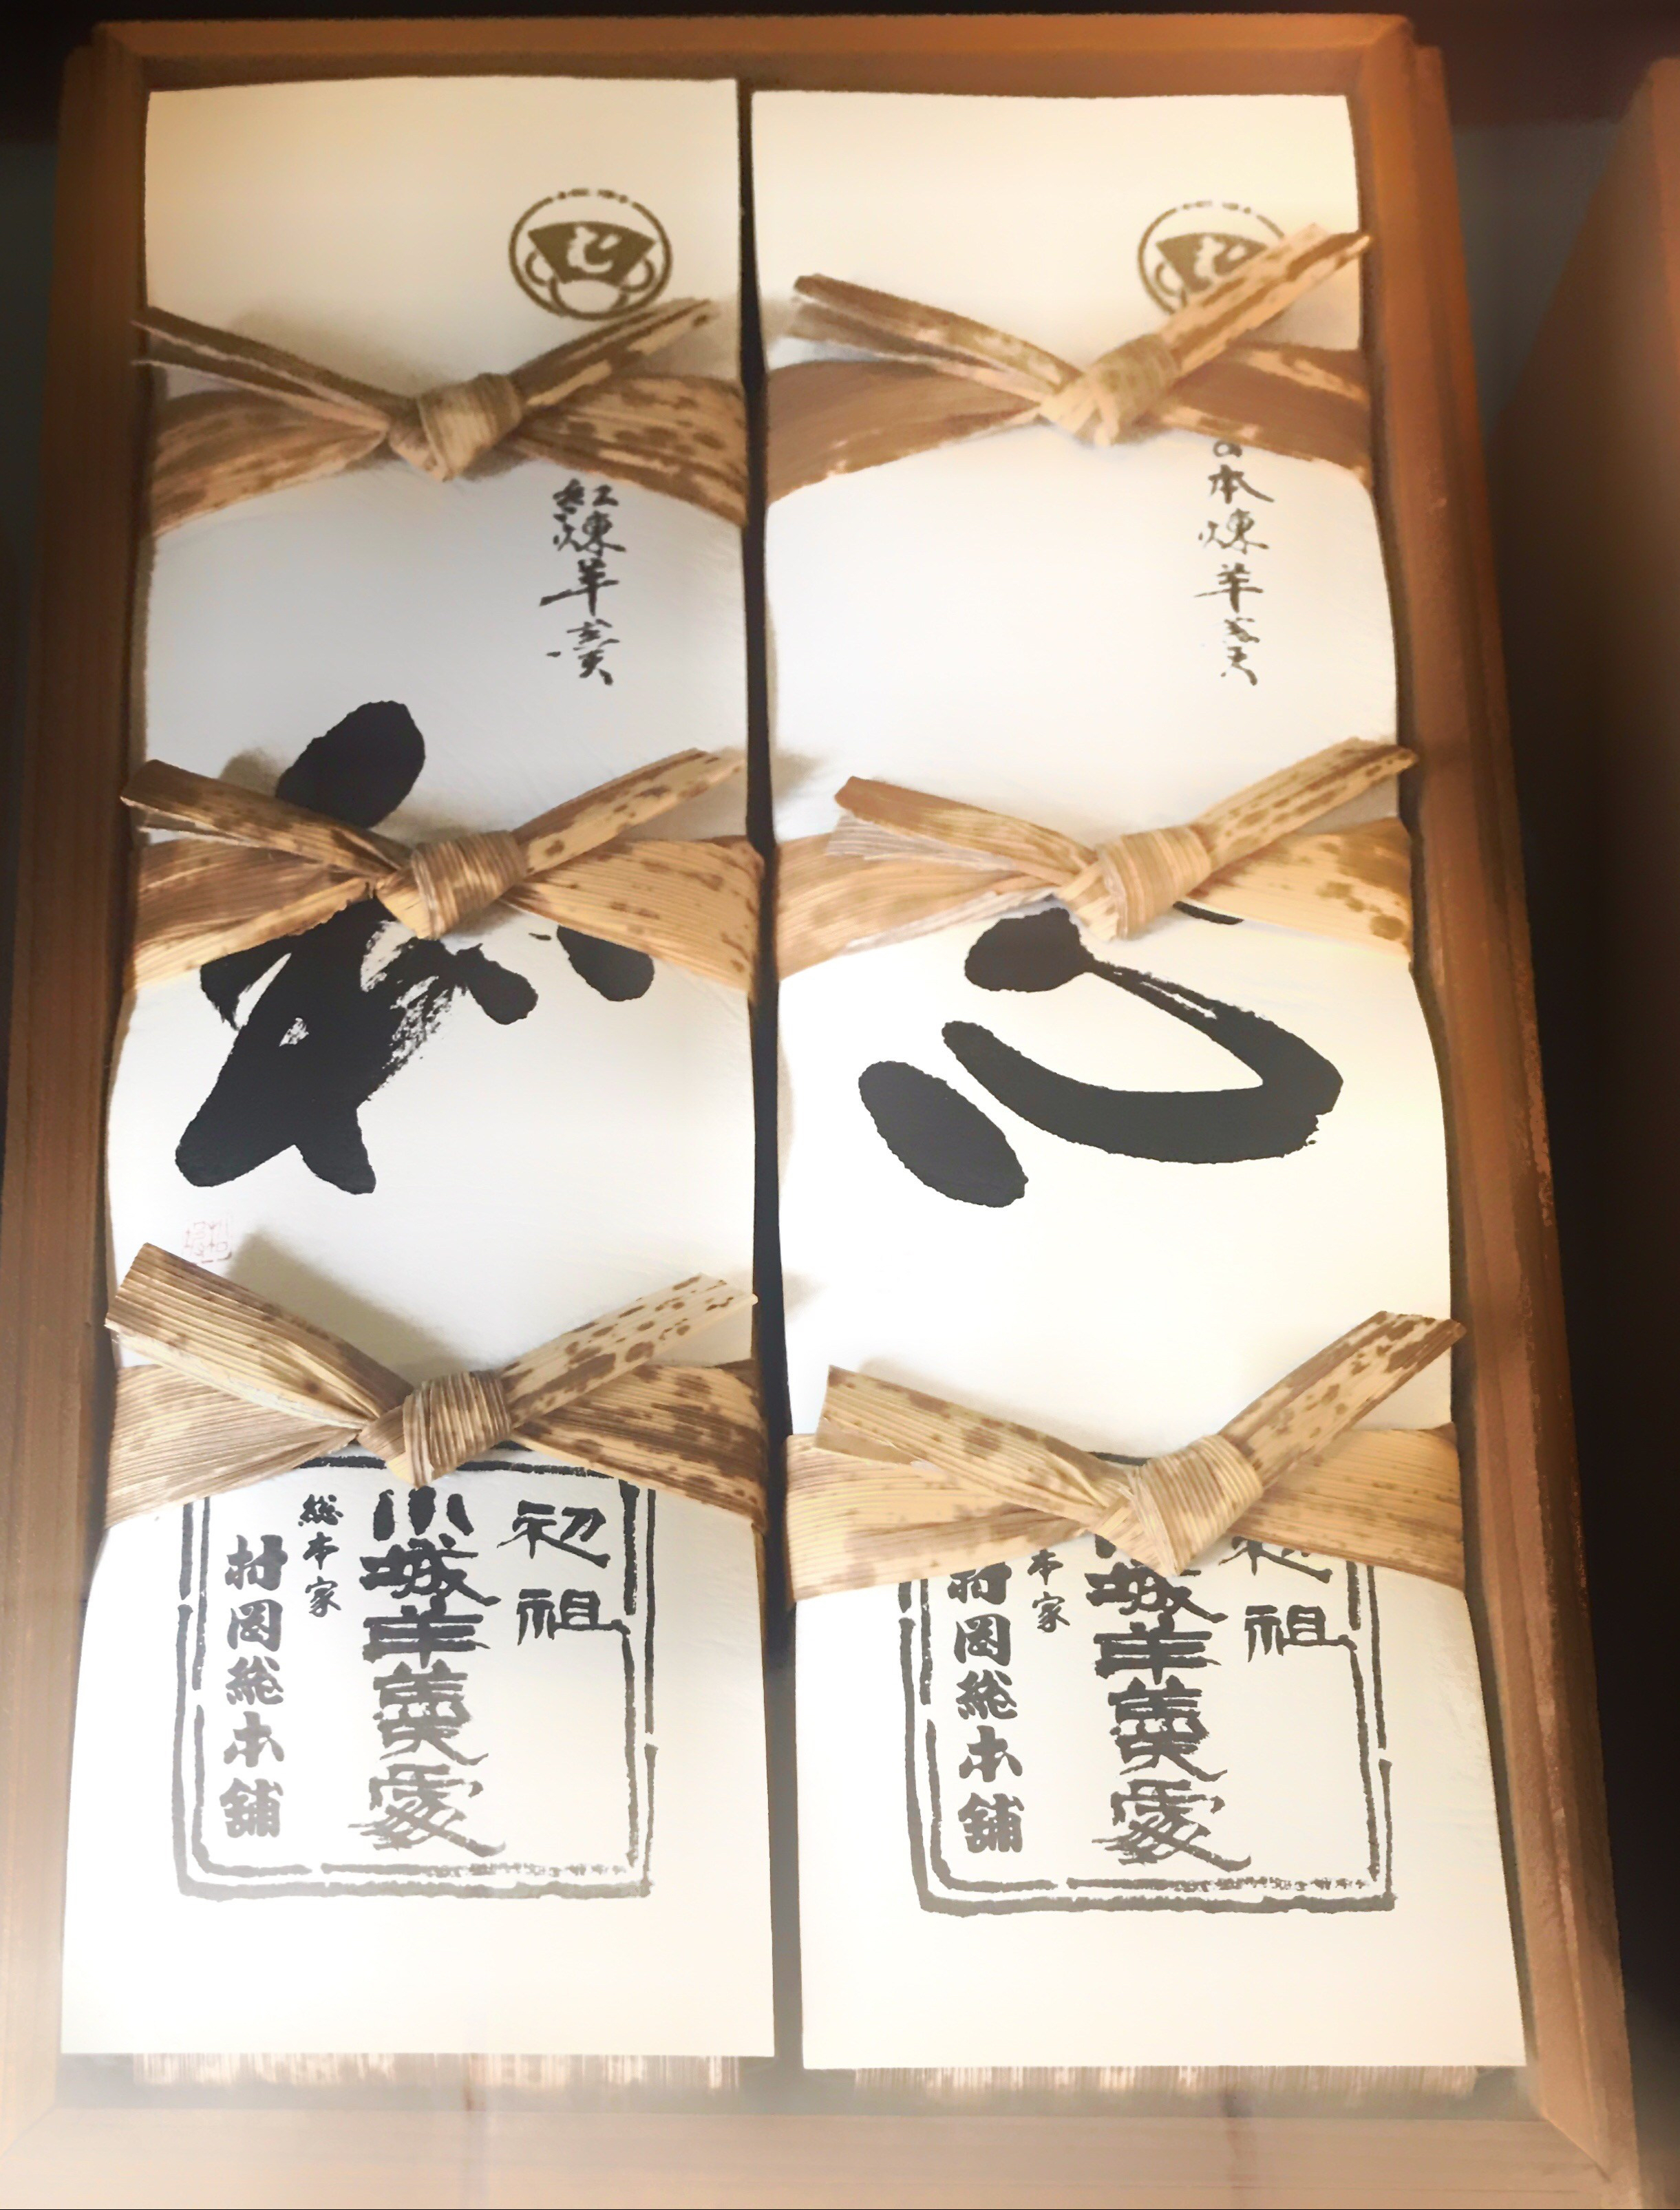 本煉羊羹
祖
城羊羹
本家
岡総本舗
紅煉羊羹
初祖
小城羊羹
総本家
村岡総本舗